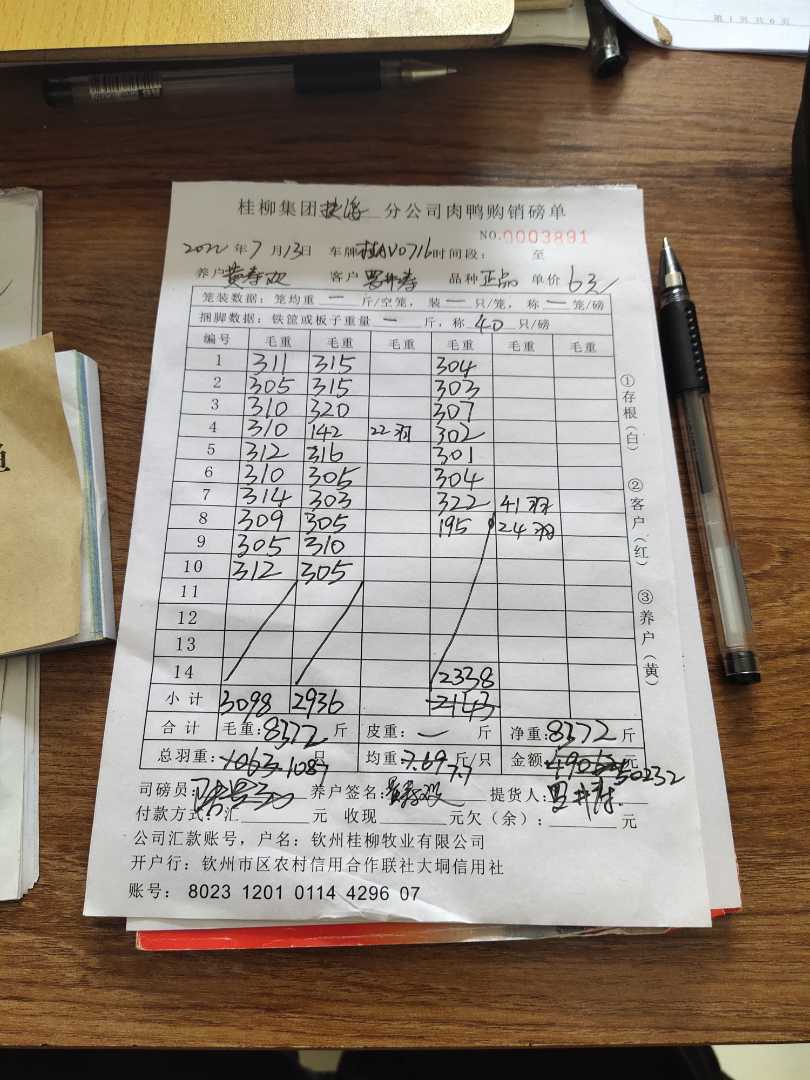 第1页共6页
桂柳集团扶隆分公司肉鸭购销磅单
NO.0003891
2022年7月13日 车牌桂AV0716时间段： 至
养户 黄寿欢 客户 品种 正品 单价 6元
笼装数据：笼均重 一 斤/空笼，装 一 只/笼，称 一 笼/磅
捆脚数据：铁筐或板子重量 一 斤，称 40 只/磅
编号 毛重 毛重 毛重 毛重 毛重 毛重
1 311 315 304
2 305 315 303
3 310 320 307
4 310 142 22羽 302
5 312 316 301
6 310 305 304
7 314 303 322 41羽
8 309 305 195 24羽
9 305 310
10 312 305
11
12
13
14 2338
小计 3098 2936 2143
合计 毛重：8372斤 皮重：一 斤 净重：8372斤
总羽重：1063 1087只 均重：7.69 7.7斤/只 金额：49062 50232元
司磅员： 养户签名：黄寿欢 提货人：
付款方式：汇 元 收现 元欠（余）： 元
公司汇款账号，户名：钦州桂柳牧业有限公司
开户行：钦州市区农村信用合作联社大垌信用社
账号：8023 1201 0114 4296 07
①存根（白） ②客户（红） ③养户（黄）